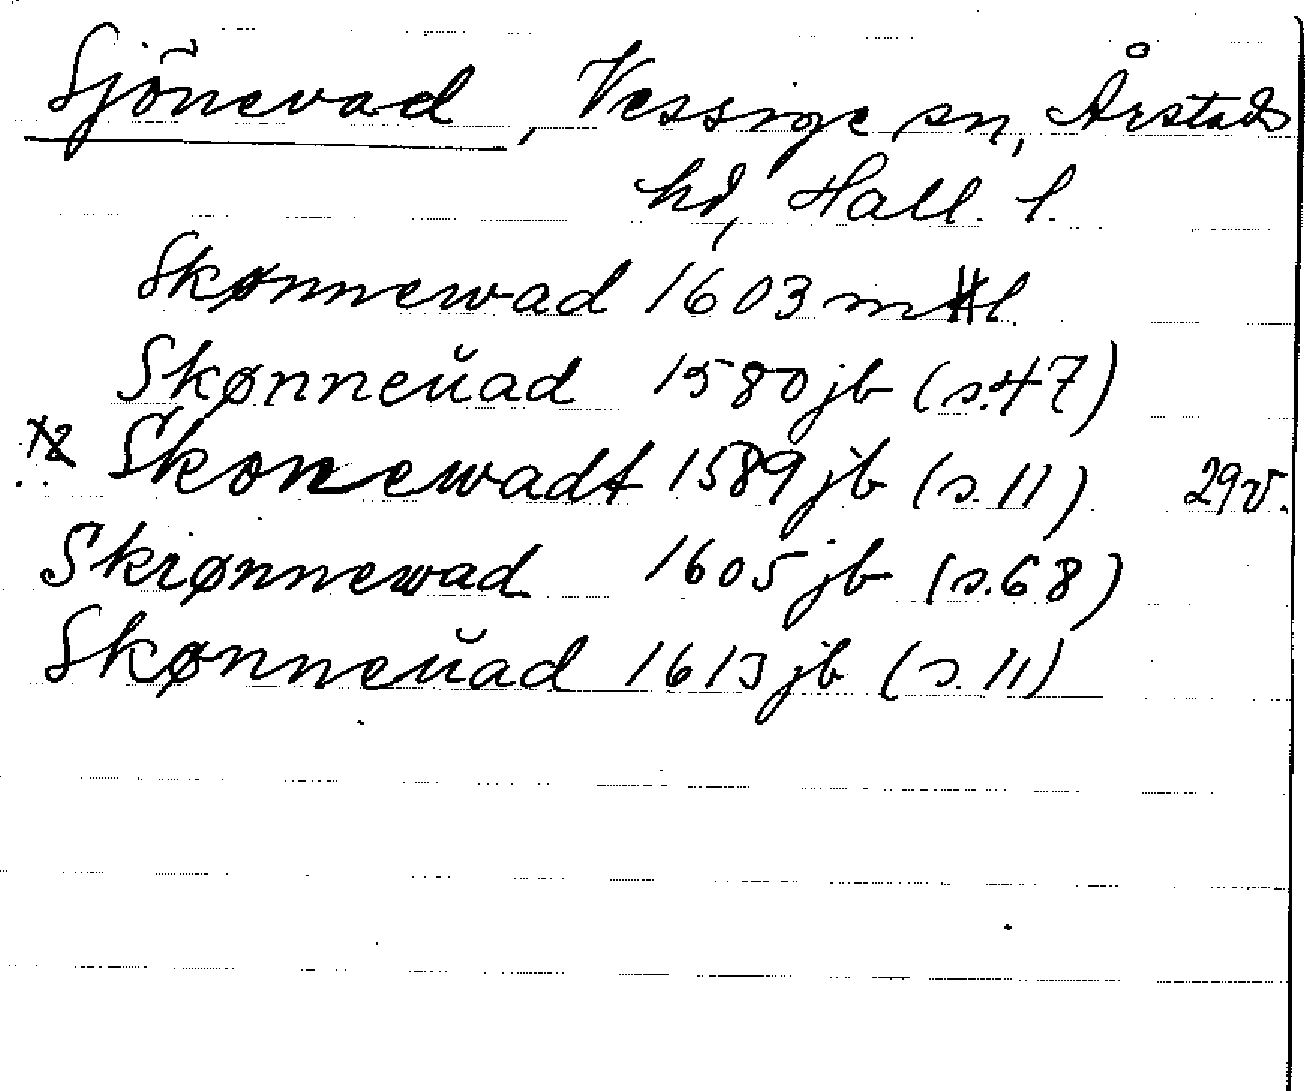 Sjönevad, Vessige sn, Årstads
hd, Hall. l.
Skønnewad 1603 mtl
Skønneŭad 1580 jb (s.47)
Skonewadt 1589 jb (s.11) 29v.
Skiønnewad 1605 jb (s.68)
Skønneŭad 1613 jb (s.11)